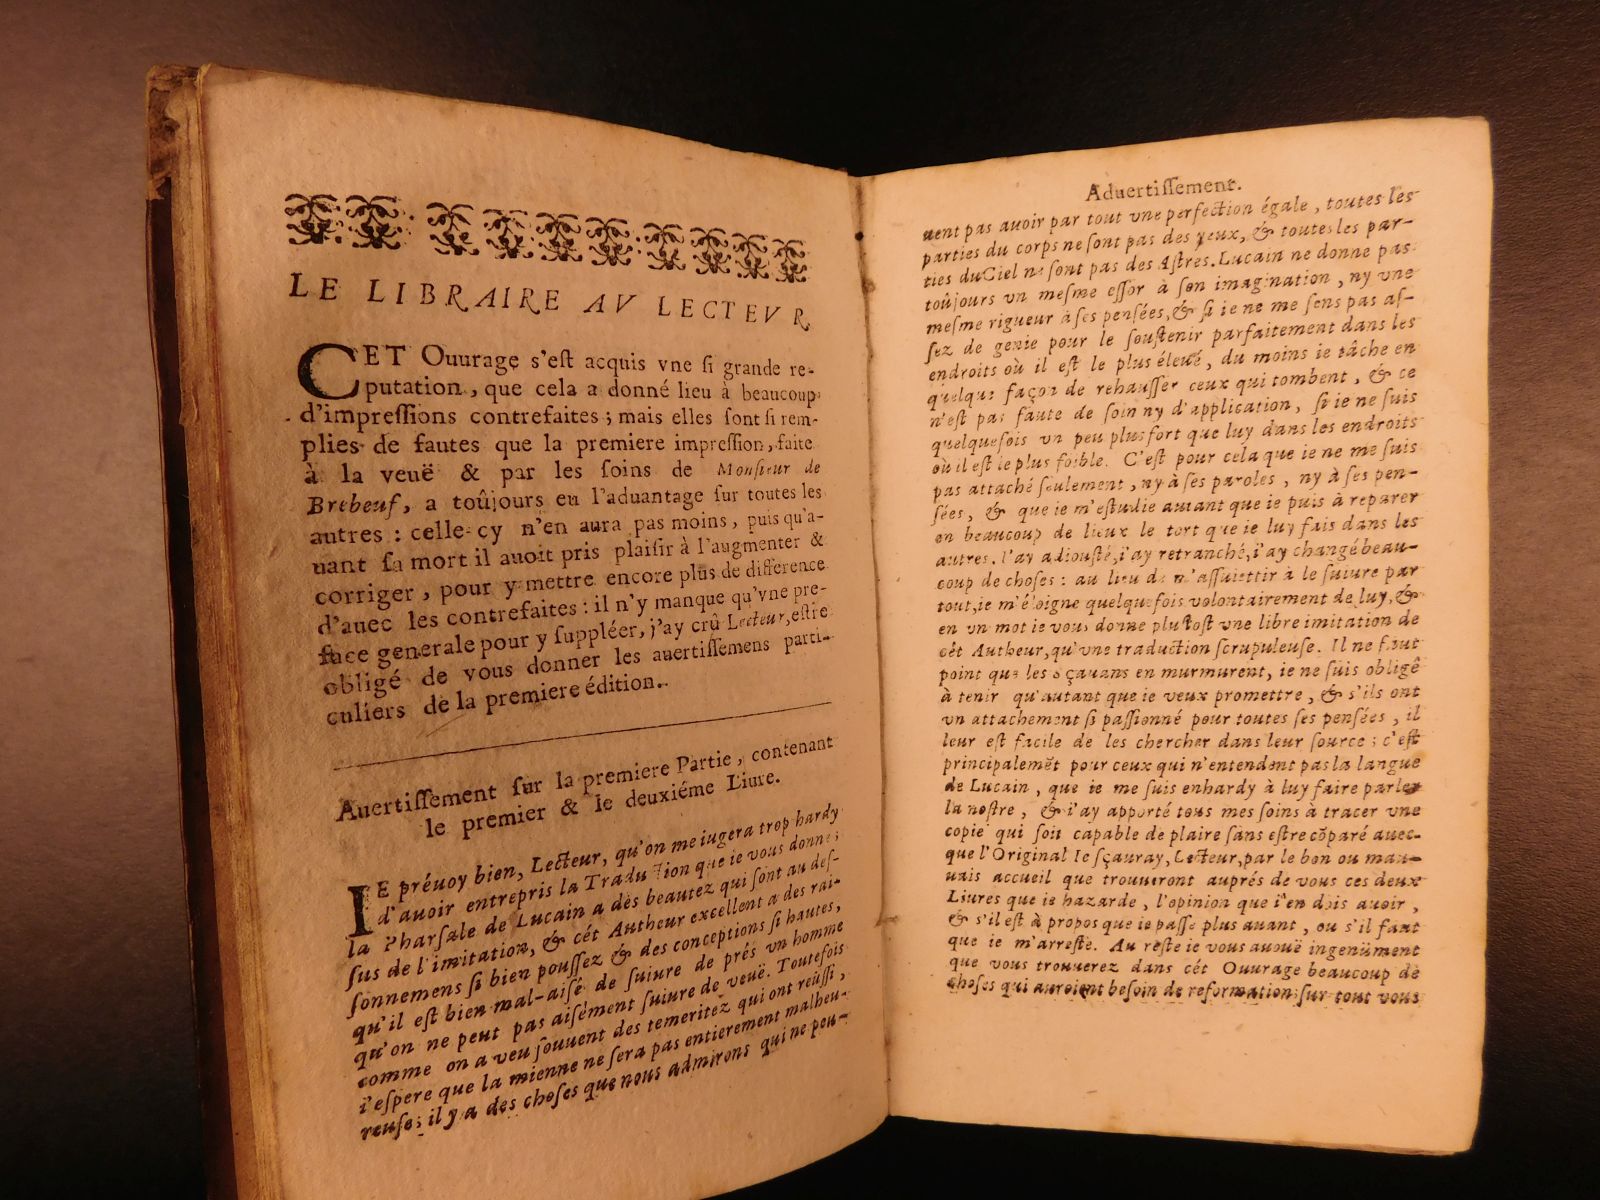 LE LIBRAIRE AV LECTEVR
CET Ouurage s'eſt acquis vne ſi grande re-
putation, que cela a donné lieu à beaucoup
d'impreſſions contrefaites ; mais elles ſont ſi rem-
plies de fautes que la premiere impreſſion, faite
à la veuë & par les ſoins de Monſieur de
Brebeuf, a toûjours eu l'aduantage ſur toutes les
autres : celle-cy n'en aura pas moins, puis qu'a-
uant ſa mort il auoit pris plaiſir à l'augmenter &
corriger, pour y mettre encore plus de difference
d'auec les contrefaites : il n'y manque qu'vne pre-
face generale pour y ſuppléer, j'ay crû Lecteur, eſtre
obligé de vous donner les auertiſſemens parti-
culiers de la premiere édition.
Auertiſſement ſur la premiere Partie, contenant
le premier & le deuxiéme Liure.
IE préuoy bien, Lecteur, qu'on me iugera trop hardy
d'auoir entrepris la Traduction que ie vous donne ;
la Pharſale de Lucain a dès beautez qui ſont au deſ-
ſus de l'imitation, & cét Autheur excellent a des rai-
ſonnemens ſi bien pouſſez & des conceptions ſi hautes,
qu'il eſt bien mal-aiſé de ſuiure de prés vn homme
qu'on ne peut pas aiſément ſuiure de veuë. Toutefois
comme on a veu ſouuent des temeritez qui ont reüſſi,
i'eſpere que la mienne ne ſera pas entierement malheu-
reuſe ; il y a des choſes que nous admirons qui ne peu-
Aduertiſſement.
uent pas auoir par tout vne perfection égale, toutes les
parties du corps ne ſont pas des yeux, & toutes les par-
ties du Ciel ne ſont pas des Aſtres. Lucain ne donne pas
toûjours vn meſme eſſor à ſon imagination, ny vne
meſme rigueur à ſes penſées, & ſi ie ne me ſens pas aſ-
ſez de genie pour le ſouſtenir parfaitement dans les
endroits où il eſt le plus éleué, du moins ie tâche en
quelque façon de rehauſſer ceux qui tombent, & ce
n'eſt pas faute de ſoin ny d'application, ſi ie ne ſuis
quelquefois vn peu plus fort que luy dans les endroits
où il eſt le plus foible. C'eſt pour cela que ie ne me ſuis
pas attaché ſeulement, ny à ſes paroles, ny à ſes pen-
ſées, & que ie m'eſtudie autant que ie puis à reparer
en beaucoup de lieux le tort que ie luy fais dans les
autres. I'ay adiouſté, i'ay retranché, i'ay changé beau-
coup de choſes : au lieu de m'aſſuiettir à le ſuiure par
tout, ie m'éloigne quelquefois volontairement de luy, &
en vn mot ie vous donne pluſtoſt vne libre imitation de
cét Autheur, qu'vne traduction ſcrupuleuſe. Il ne faut
point que les Sçauans en murmurent, ie ne ſuis obligé
à tenir qu'autant que ie veux promettre, & s'ils ont
vn attachement ſi paſſionné pour toutes ſes penſées, il
leur eſt facile de les chercher dans leur ſource ; c'eſt
principalemẽt pour ceux qui n'entendent pas la langue
de Lucain, que ie me ſuis enhardy à luy faire parler
la noſtre, & i'ay apporté tous mes ſoins à tracer vne
copie qui ſoit capable de plaire ſans eſtre cõparé auec-
que l'Original Ie sçauray, Lecteur, par le bon ou mau-
uais accueil que trouueront auprés de vous ces deux
Liures que ie hazarde, l'opinion que i'en dois auoir,
& s'il eſt à propos que ie paſſe plus auant, ou s'il faut
que ie m'arreſte. Au reſte ie vous auouë ingenüment
que vous trouuerez dans cét Ouurage beaucoup de
choſes qui auroient beſoin de reformation ; ſur tout vous